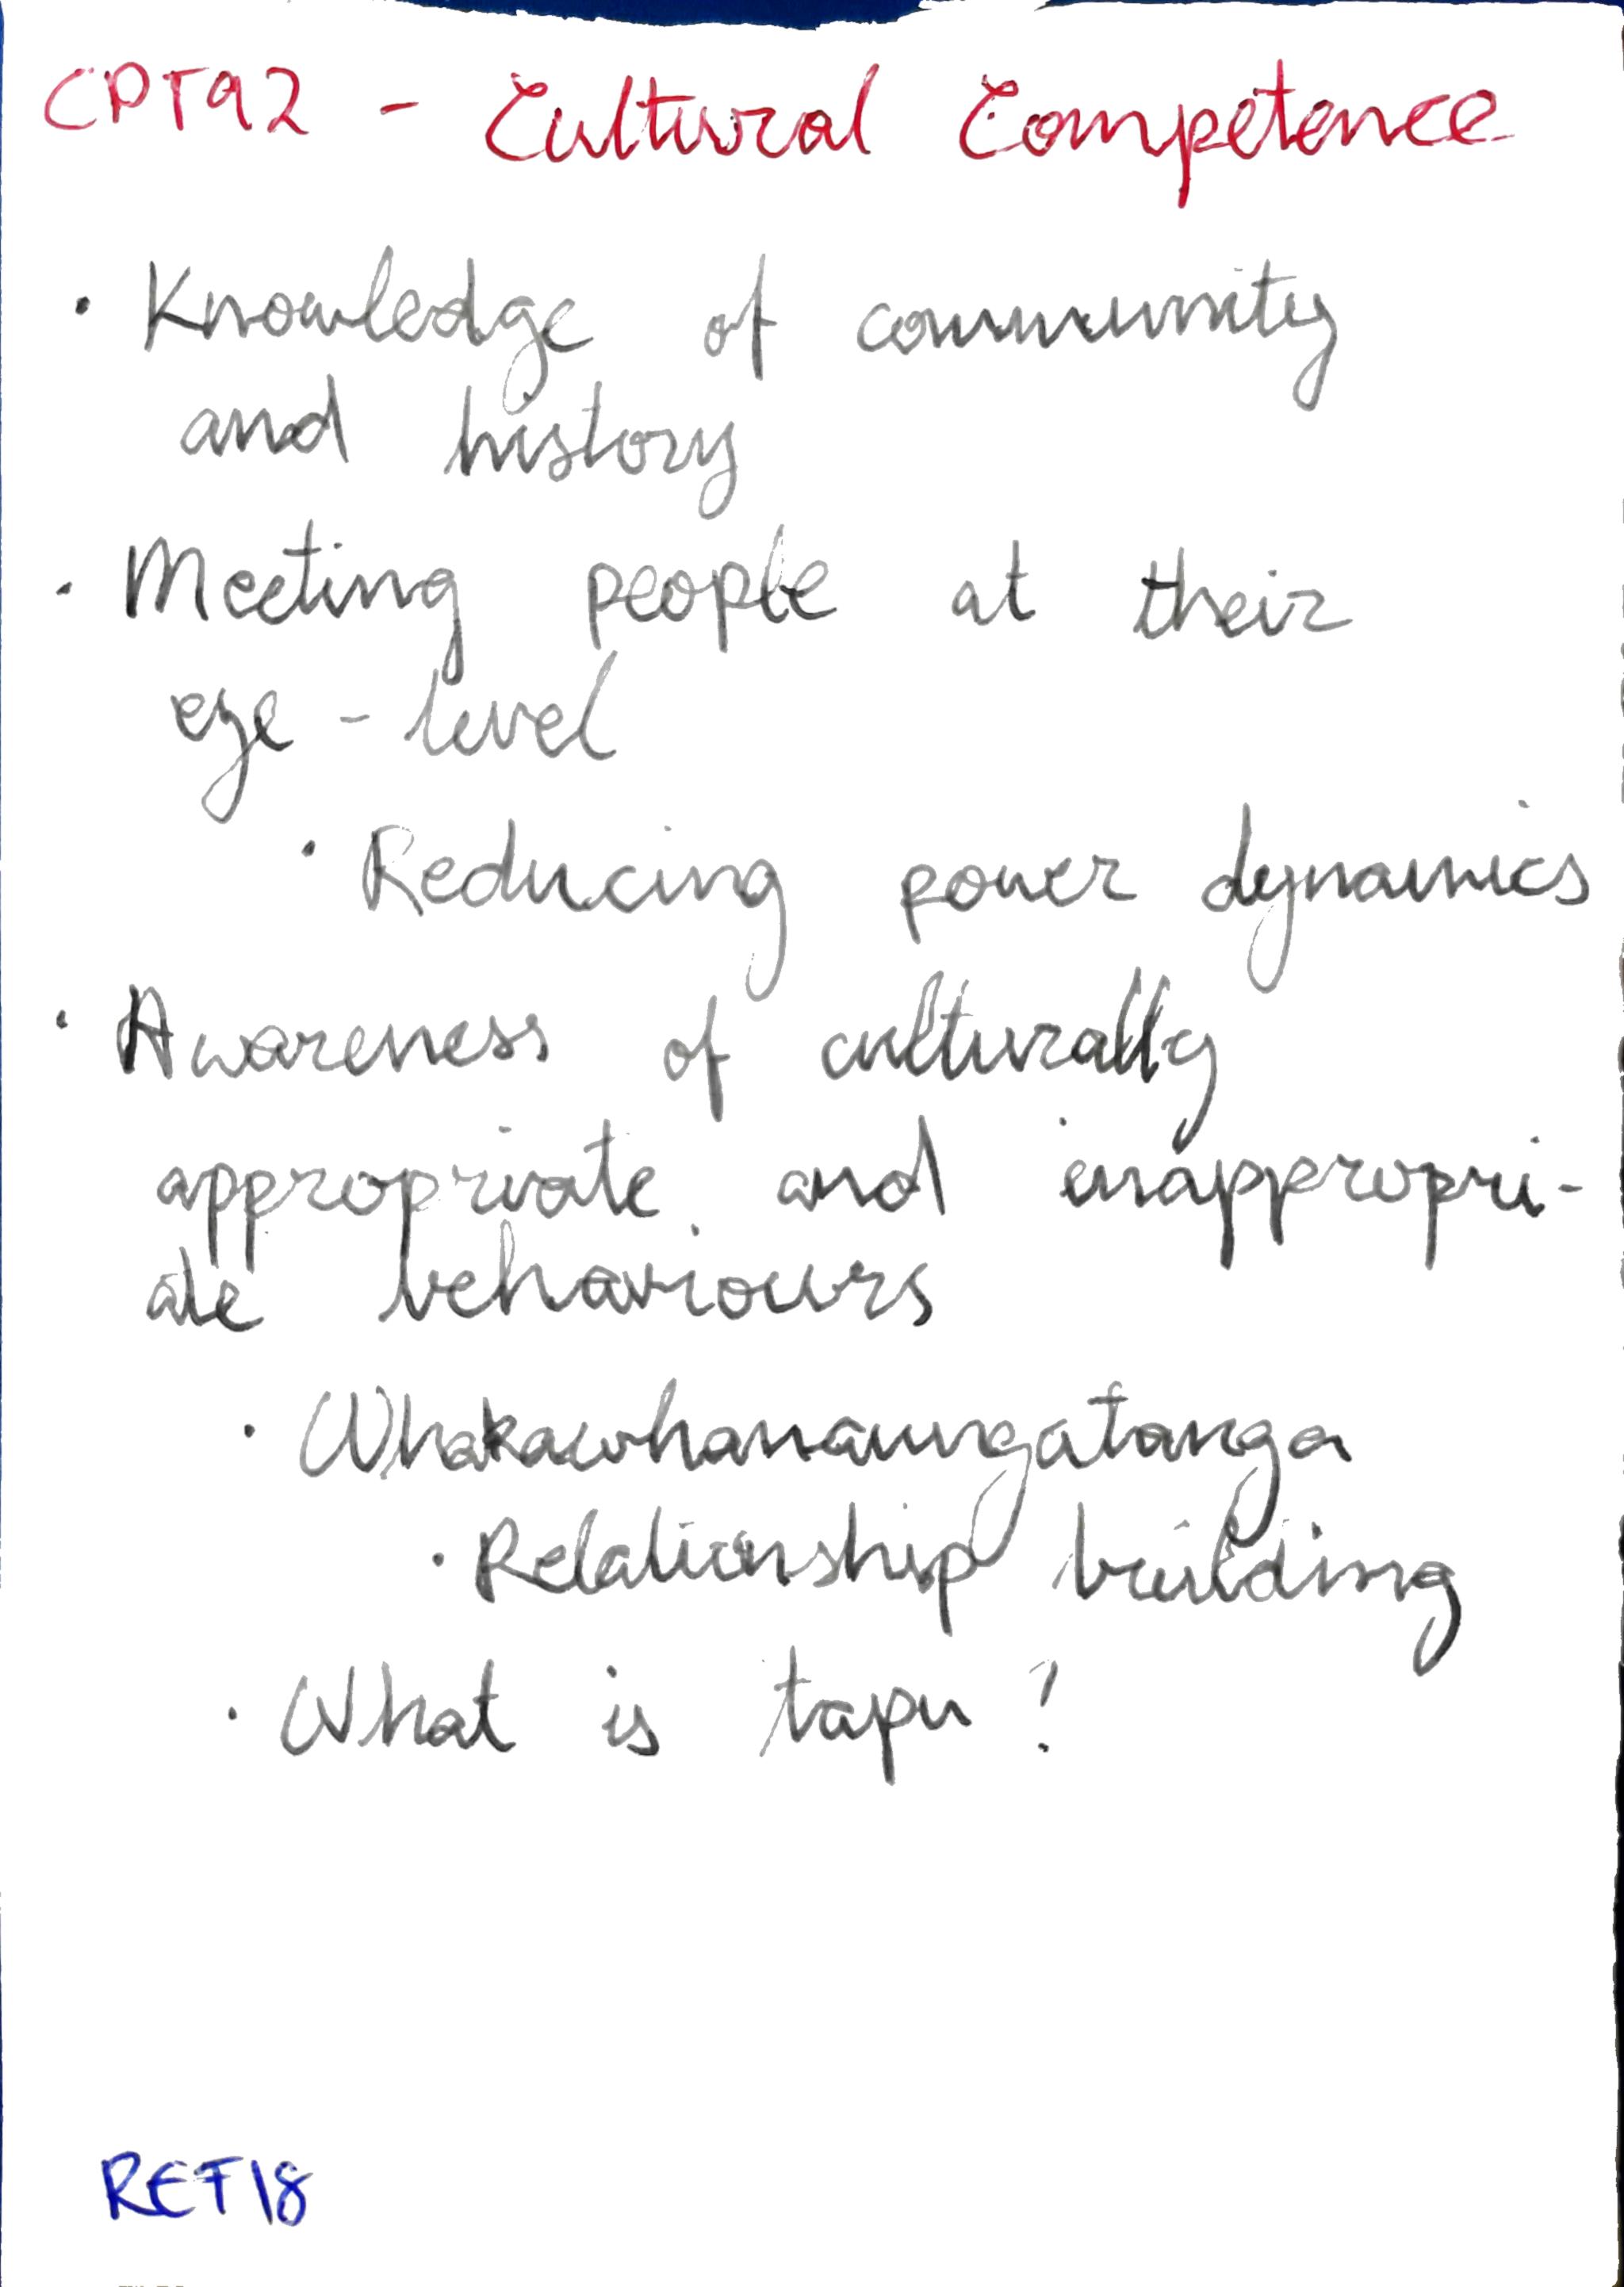 CPT92 - Cultural Competence
· Knowledge of community
and history
· Meeting people at their
eye-level
· Reducing power dynamics
· Awareness of culturally
appropriate and inappropri-
ate behaviours
· Whakawhanaungatanga
· Relationship building
· What is tapu?
REF18